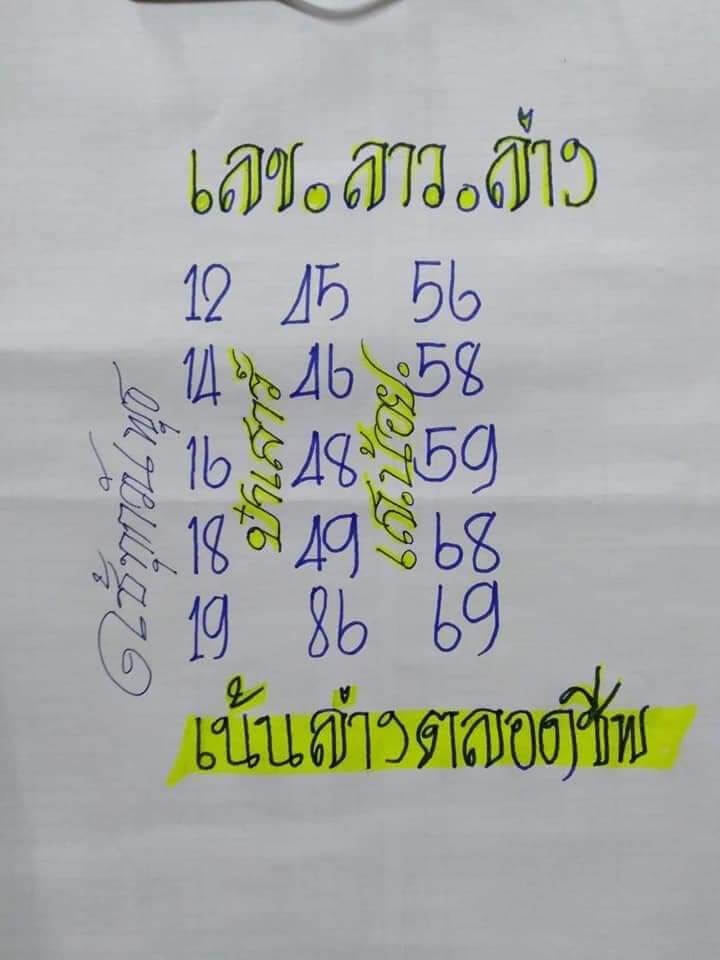 เลข.ลาว.ล่าง
12 45 56
14 46 58
16 48 59
18 49 68
19 86 69
ป่าเสาร์
เส.น้อย.
เน้นล่างตลอดชีพ